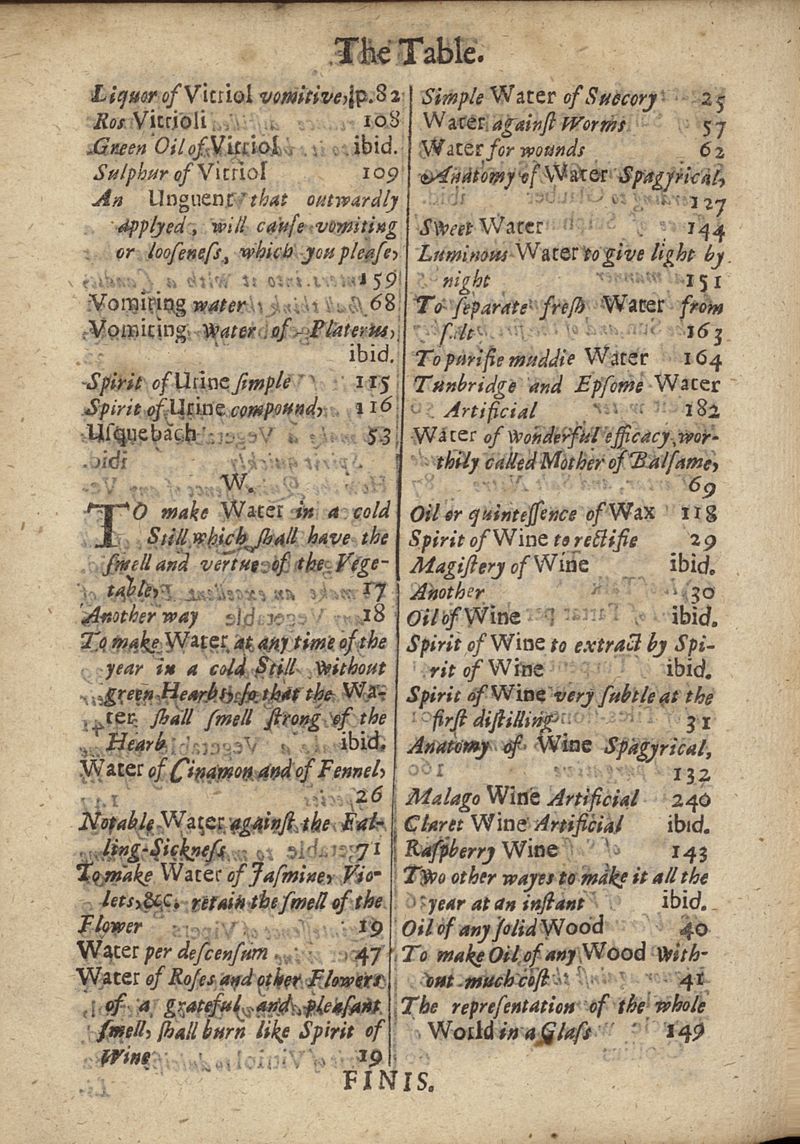 The Table.
Liquor of Vitriol vomitive, p.82
Ros Vitrioli 108
Green Oil of Vitriol ibid.
Sulphur of Vitriol 109
An Unguent that outwardly
applyed, will cauſe vomiting
or looſeneſs, which you pleaſe,
159
Vomiting water 68
Vomiting Water of Platerus,
ibid.
Spirit of Urine ſimple 115
Spirit of Urine compound, 116
Uſquebach 53
W.
TO make Water in a cold
Still which ſhall have the
ſmell and vertue of the Vege-
table, 17
Another way 18
To make Water at any time of the
year in a cold Still without
green Hearbs, ſo that the Wa-
ter ſhall ſmell ſtrong of the
Hearb ibid.
Water of Cinamon and of Fennel,
26
Notable Water againſt the Fal-
ling-Sickneſs 71
To make Water of Jaſmine, Vio-
lets, &c. retain the ſmell of the
Flower 19
Water per deſcenſum 47
Water of Roſes and other Flowers
of a grateful and pleaſant
ſmell, ſhall burn like Spirit of
Wine 19
Simple Water of Succory 25
Water againſt Worms 57
Water for wounds 62
Anatomy of Water Spagyrical,
127
Sweet Water 144
Luminous Water to give light by
night 151
To ſeparate freſh Water from
ſalt 163
To purifie muddie Water 164
Tunbridge and Epſome Water
Artificial 182
Water of wonderful efficacy, wor-
thily called Mother of Balſame,
69
Oil or quinteſſence of Wax 118
Spirit of Wine to rectifie 29
Magiſtery of Wine ibid.
Another 30
Oil of Wine ibid.
Spirit of Wine to extract by Spi-
rit of Wine ibid.
Spirit of Wine very ſubtle at the
firſt diſtilling 31
Anatomy of Wine Spagyrical,
132
Malago Wine Artificial 240
Claret Wine Artificial ibid.
Raſpberry Wine 143
Two other wayes to make it all the
year at an inſtant ibid.
Oil of any ſolid Wood 40
To make Oil of any Wood with-
out much coſt 41
The repreſentation of the whole
World in a Glaſs 149
FINIS.